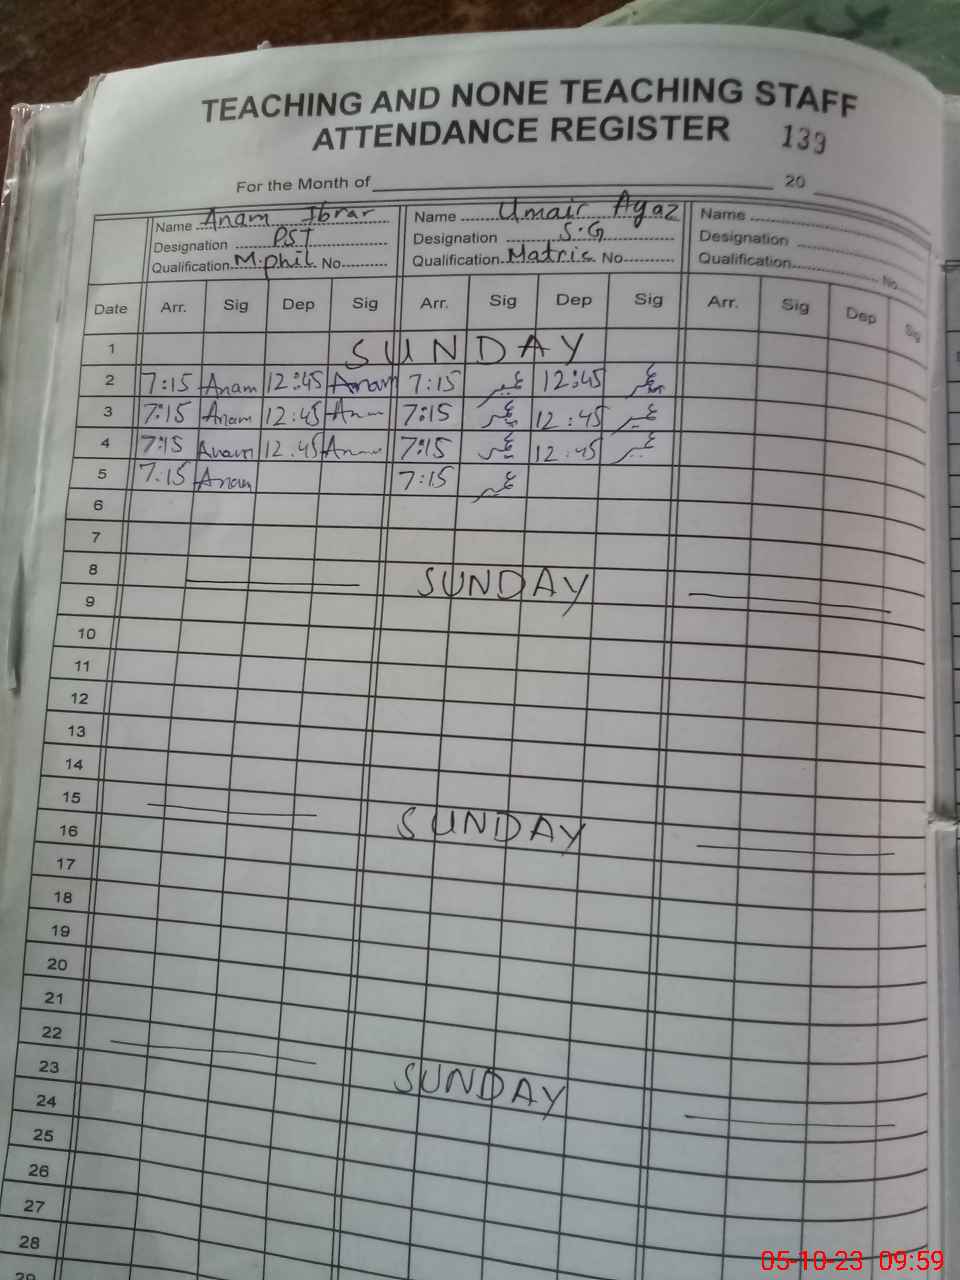 TEACHING AND NONE TEACHING STAFF
ATTENDANCE REGISTER 139
For the Month of 20
Name Anam Ibrar Name Umair Ayaz Name
Designation PST Designation S.G Designation
Qualification M.phil No Qualification Matric No Qualification No
Date Arr. Sig Dep Sig Arr. Sig Dep Sig Arr. Sig Dep Sig
1 SUNDAY
2 7:15 Anam 12:45 Anam 7:15 عمیر 12:45 عمیر
3 7:15 Anam 12:45 Anam 7:15 عمیر 12:45 عمیر
4 7:15 Anam 12:45 Anam 7:15 عمیر 12:45 عمیر
5 7:15 Anam 7:15 عمیر
6
7
8 SUNDAY
9
10
11
12
13
14
15 SUNDAY
16
17
18
19
20
21
22 SUNDAY
23
24
25
26
27
28
29
05-10-23 09:59